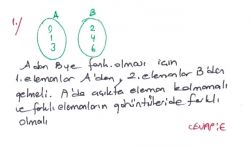 1./ A B
0 2
1 4
3 6
A dan B ye fonk. olması için
1. elemanlar A'dan, 2. elemanlar B'den
gelmeli. A'da açıkta eleman kalmamalı
ve farklı elemanların görüntüleride farklı
olmalı
CEVAP: E